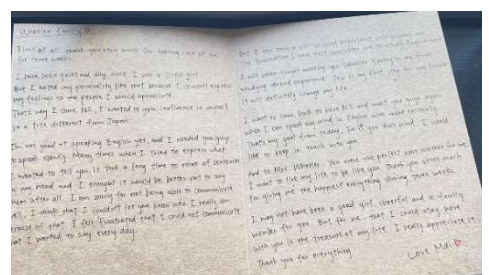 Wheeler family
First of all thank you very much for taking care of me
for three weeks.
I have been quiet and shy since I was a little girl.
But I hated my personality like that because I couldn't express
my feelings to the people I should appreciate.
That's why I came NZ. I wanted to gain confidence in myself
in a life different from Japan.
I'm not good at speaking English yet, and I needed you guys
to speak slowly. Many times when I tried to express what
I wanted to tell you, it took a long time to make of sentences
in my head and I thought it would be better not to say
them after all. I am sorry for not being able to communicate
well, I think that I couldn't let you know who I really am
because of that. I felt frustrated that I could not communicate
what I wanted to say every day.
But I
I will never forget meeting you Wheeler family in my first
studying abroad experience. This is my first
it will definitely change my life.
I want to come back to here NZ and meet you guys again
when I can speak my mind in English with more
That's my goal from today. So if you don't mind, I would
like to keep in touch with you.
And to Mrs. Wheeler. You were the perfect host mother for me.
I want to live my life to be like you. Thank you so much
for giving me the happiest everything during three weeks.
I may not have been a good girl, cheerful and a family
member for you. But for me, that I could stay here
with you is the treasure of my life. I really appreciate it.
Thank you for everything.
Love Mai